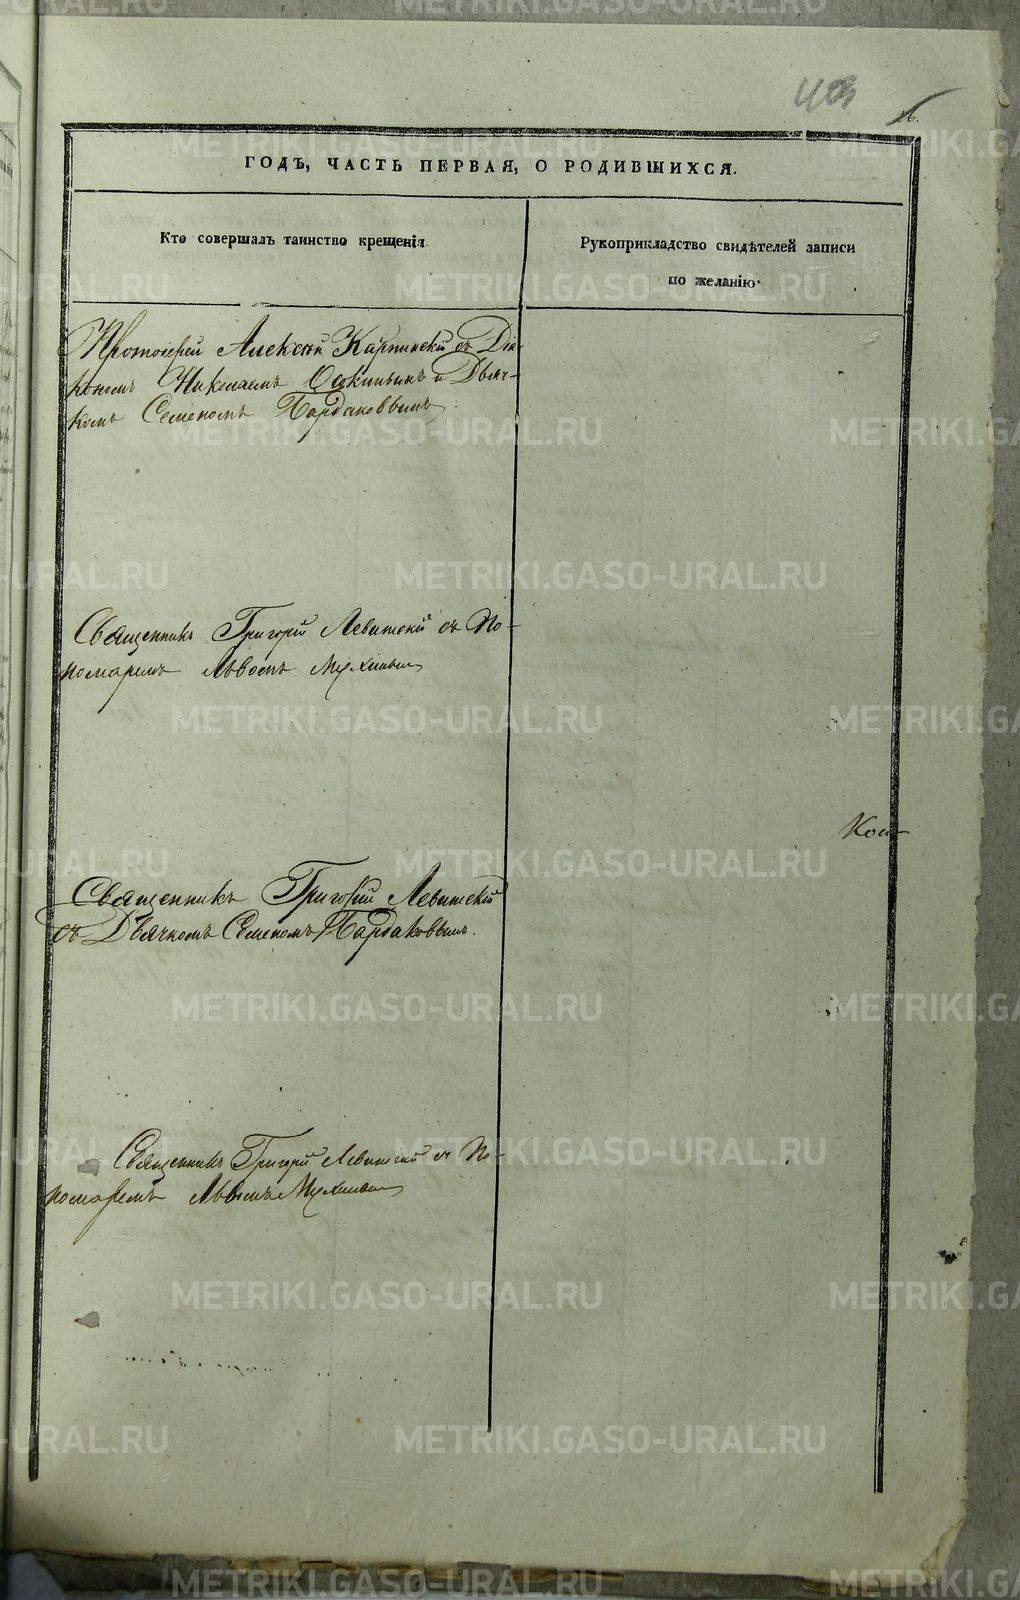 403
26.
ГОДЪ, ЧАСТЬ ПЕРВАЯ, О РОДИВШИХСЯ.
Кто совершалъ таинство крещенія.
Рукоприкладство свидѣтелей записи
по желанію.
Протоіерей Алексѣй Карпинскій съ Діа-
кономъ Николаемъ и Дьяч-
комъ Семеномъ Бардаковвымъ.
Священникъ Григорій Левитскій съ По-
номаремъ Львомъ Мухинымъ
Кол-
Священникъ Григорій Левитскій
съ Дьячкомъ Семеномъ Бардаковвымъ.
Священникъ Григорій Левитскій съ По-
номаремъ Львомъ Мухинымъ
METRIKI.GASO-URAL.RU